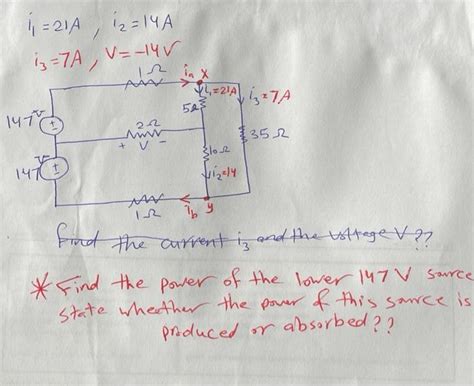 i₁=21A , i₂=14A
i₃=7A , V=-14V
1Ω
iₐ
x
i₁=21A
5Ω
i₃=7A
147V
2Ω
+ V -
35Ω
10Ω
147V
i₂=14
1Ω
i_b
y
Find the current i₃ and the voltage V??
* Find the power of the lower 147 V source
state wheather the power of this source is
produced or absorbed??